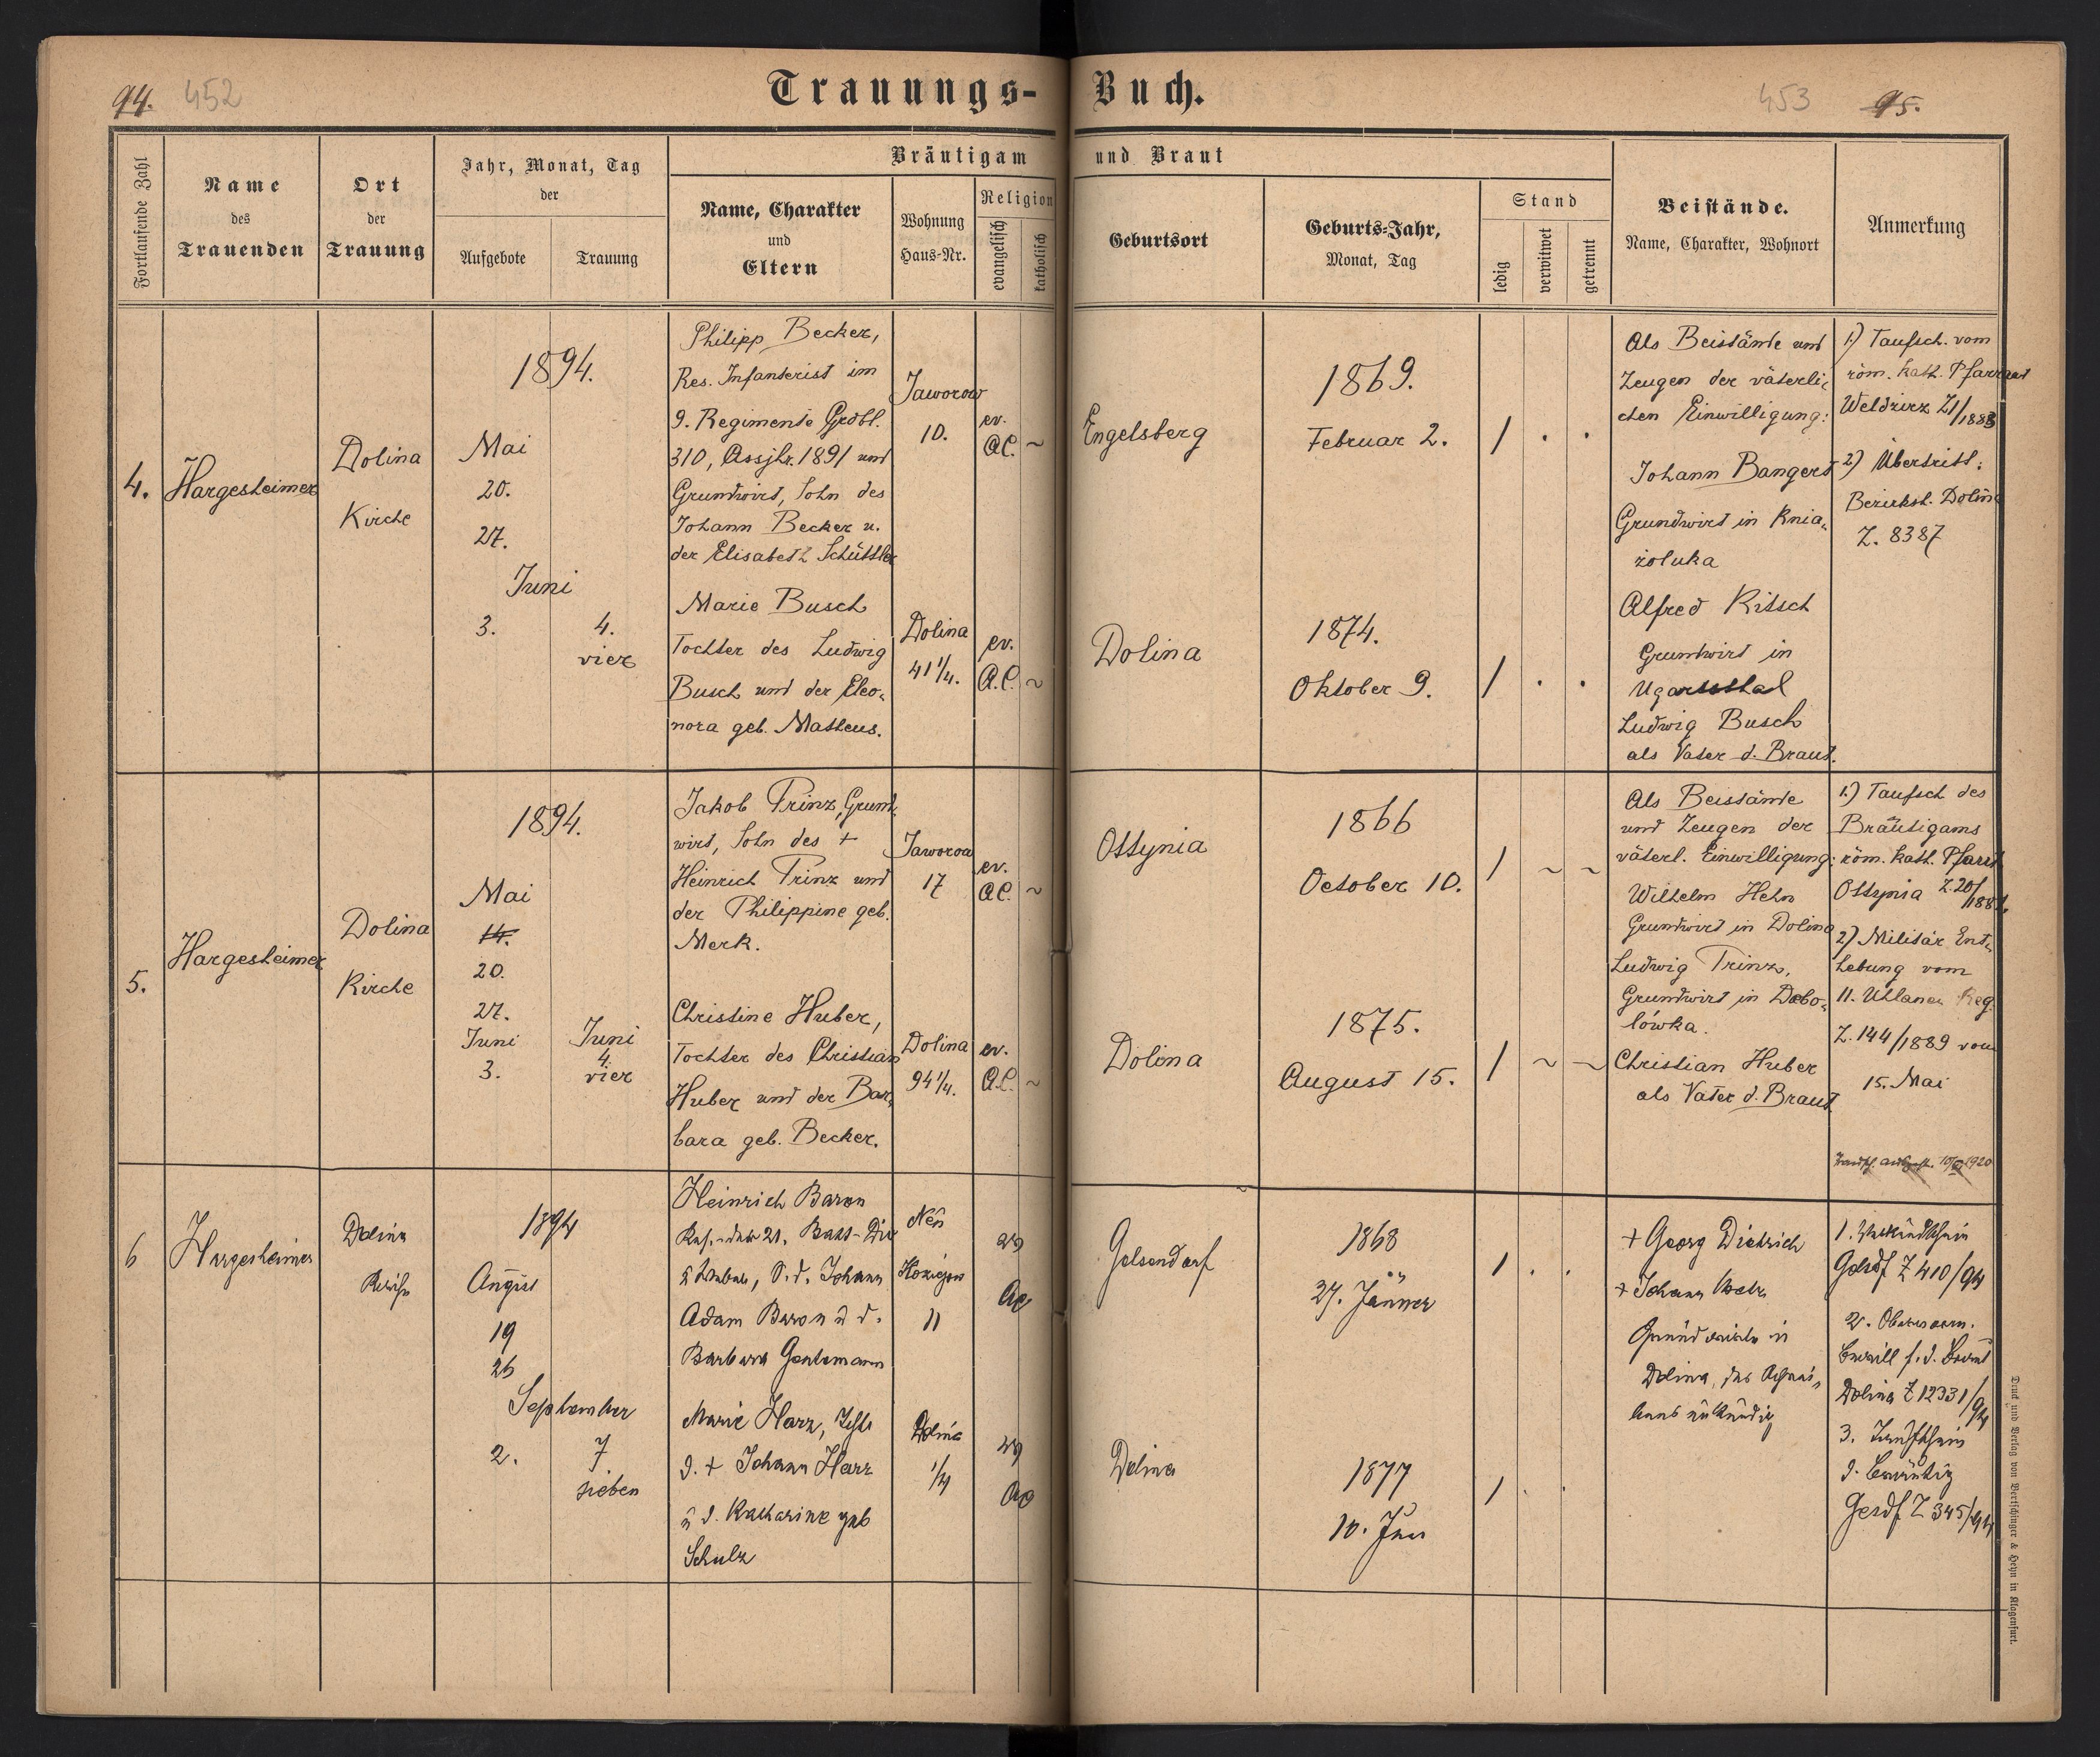 94. 452
Trauungs-Buch.
453 95.
Fortlaufende Zahl
Name des Trauenden
Ort der Trauung
Jahr, Monat, Tag der
Aufgebote
Trauung
Bräutigam und Braut
Name, Charakter und Eltern
Wohnung Haus-Nr.
Religion
evangelisch
katholisch
Geburtsort
Geburts-Jahr, Monat, Tag
Stand
ledig
verwitwet
getrennt
Beistände.
Name, Charakter, Wohnort
Anmerkung
4.
Hargesheimer
Dolina
Kirche
1894.
Mai
20.
27.
Juni
3.
4.
vier
Philipp Becker,
Res. Infanterist im
9. Regimente Grdbl.
310, Assjhr. 1891 und
Grundwirt, Sohn des
Johann Becker u.
der Elisabeth Schüttler
Jaworow
10.
ev.
A.C. ~
Engelsberg
1869.
Februar 2.
1 . .
Marie Busch
Tochter des Ludwig
Busch und der Eleo-
nora geb. Matheus.
Dolina
41 1/4.
ev.
A.C. ~
Dolina
1874.
Oktober 9.
1 . .
Als Beistände und
Zeugen der väterli-
chen Einwilligung:
Johann Bangert
Grundwirt in Knia-
żoluka
Alfred Kitsch
Grundwirt in
Ugartsthal
Ludwig Busch
als Vater d. Braut.
1.) Taufsch. vom
röm. kath. Pfarramt
Weldzirz Z1/1883
2) Übertritt:
Bezirksh. Dolina
Z. 8387
5.
Hargesheimer
Dolina
Kirche
1894.
Mai
14.
20.
27.
Juni
3.
Juni
4.
vier
Jakob Prinz, Grund-
wirt, Sohn des +
Heinrich Prinz und
der Philippine geb.
Merk.
Jaworow
17
ev.
A.C. ~
Ottynia
1866
October 10.
1 ~ ~
Christine Huber,
Tochter des Christian
Huber und der Bar-
bara geb. Becker.
Dolina
94 1/4.
ev.
A.C. ~
Dolina
1875.
August 15.
1 ~ ~
Als Beistände
und Zeugen der
väterl. Einwilligung:
Wilhelm Hehn
Grundwirt in Dolina
Ludwig Prinz,
Grundwirt in Debo-
lówka.
Christian Huber
als Vater d. Braut.
1.) Taufsch des
Bräutigams
röm. kath. Pfarrt
Ottynia Z. 20/
2) Militär Ent-
hebung vom
11. Uhlanen Reg.
Z. 144/1889 vom
15. Mai
1920
6
Hargesheimer
Dolina
Kirche
1894
August
19
26
September
2.
7
sieben
Heinrich Baron
21.
S. d. Johann
Adam Baron u d.
Barbara Gentemann
Neu
11
ev
AC
Gelsendorf
1868
27. Jänner
1 . .
Marie Harz, Tocht
d. + Johann Harz
u d. Katharine geb
Schulz
Dolina
1/4
ev
AC
Dolina
1877
10.
1 . .
+ Georg Dietrich
+ Johann
Grundwirte in
Dolina, des Schrei-
bens unkundig
1. Verkündschein
Gelsdf Z 410/94
2.
Dolina Z 12331/94
3. Taufschein
d. Bräutig
Gelsdf Z 345/94
Druck und Verlag von Bertschinger & Heyn in Klagenfurt.